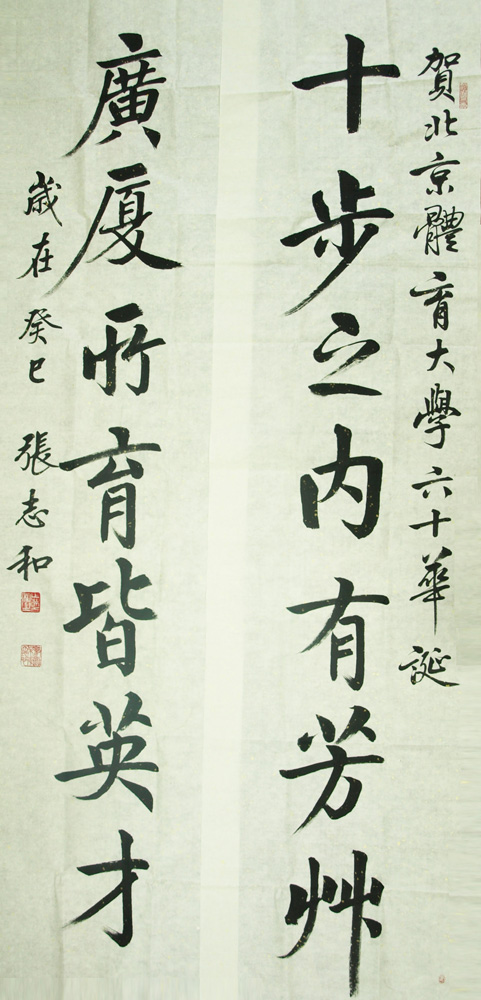 賀北京體育大學六十華誕
十步之内有芳艸
廣厦所育皆英才
歲在癸巳 張志和